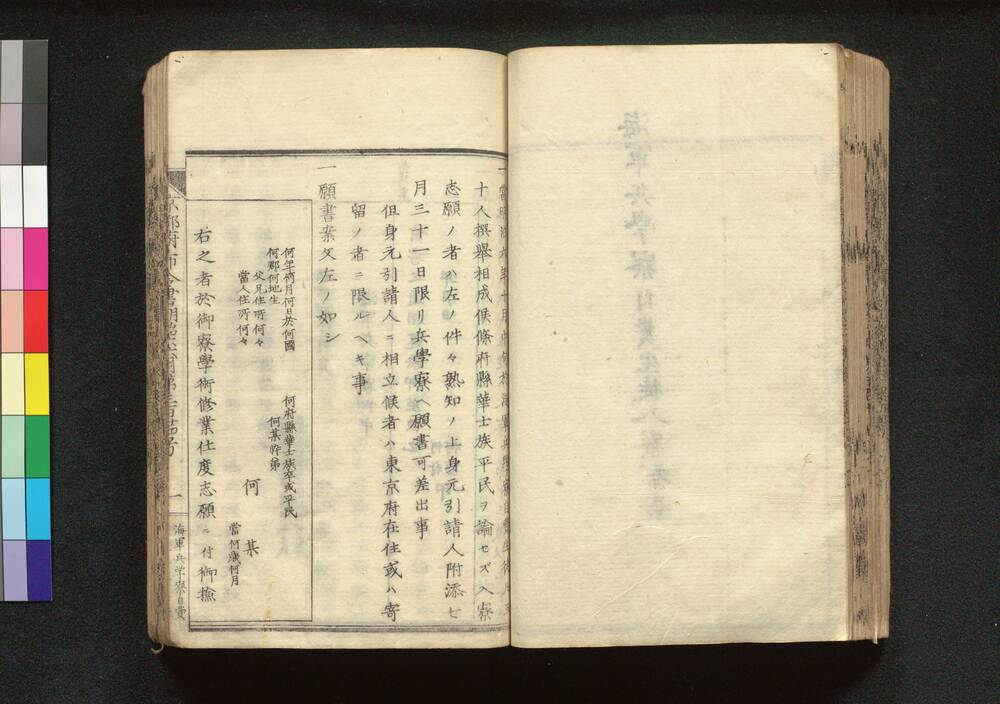 十人撰擧相成候條府縣華士族平民ヲ論セズ入寮
志願ノ者ハ左ノ件々熟知ノ上身元引請人附添七
月三十一日限リ兵學寮ヘ願書可差出事
但身元引請人ニ相立候者ハ東京府在住或ハ寄
留ノ者ニ限ルヘキ事
一願書案文左ノ如シ
何府縣華士族卒或平民
何某昨弟
何年何月何日於何國
何郡何地生
父兄住所何々
當人住所何々
何 某
當何歳何月
右之者於御寮學術修業仕度志願ニ付御撿
京都府布令書明治六年第三百
一
海軍兵学寮自費